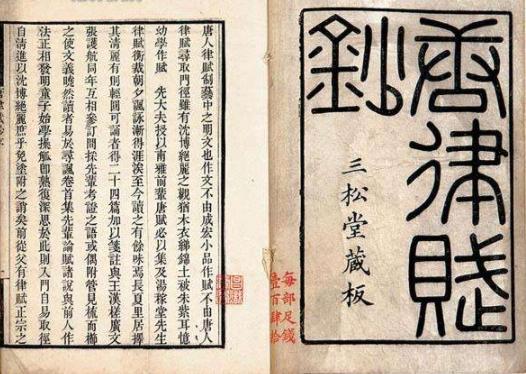 唐律賦
鈔
三松堂藏板
每部足錢
壹百肆拾
唐人律賦制藝中之明文也作文不由成宏小品作賦不由唐人
律賦尋取門徑雖有沈博絕麗之觀猶木衣綈錦土被朱紫耳憶
幼學作賦　先大夫授以南雅前輩唐賦必以集及湯稼堂先生
律賦衡裁朝夕諷詠漸得涯涘至今讀之有餘味焉長夏里居擇
其清麗有則輕圓可誦者得二十四篇加以箋註與王漢槎廣文
張護航同年互相參訂間採先輩考證之語或偶附管見梳而櫛
之使文義曉然讀者易於尋諷卷首集先輩論賦諸說與前人作
法正相發明童子始學操觚即熟復深思於此則入門自易取徑
自清進以沈博絕麗庶乎免塗附之誚矣前從父有律賦正宗之